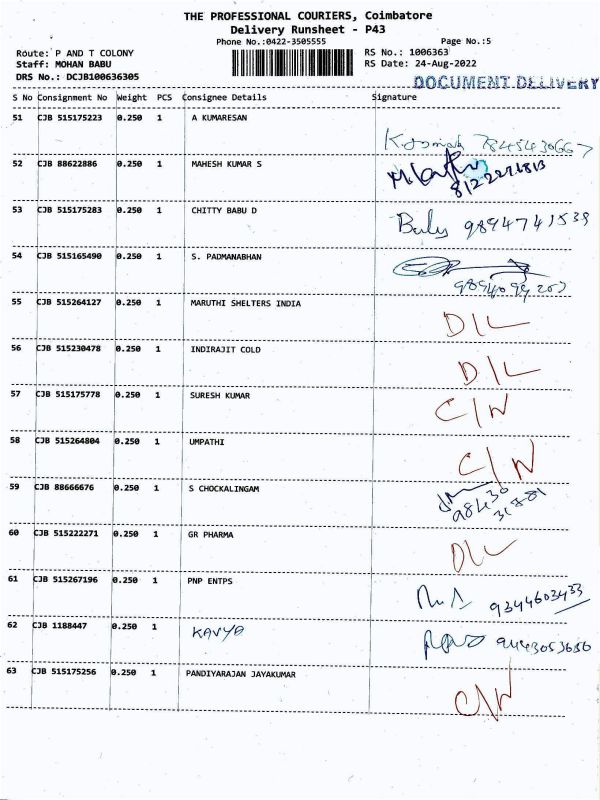 THE PROFESSIONAL COURIERS, Coimbatore
Delivery Runsheet - P43
Phone No.:0422-3505555 Page No.:5
Route: P AND T COLONY RS No.: 1006363
Staff: MOHAN BABU RS Date: 24-Aug-2022
DRS No.: DCJB100636305
DOCUMENT DELIVERY
S No Consignment No Weight PCS Consignee Details Signature
51 CJB 515175223 0.250 1 A KUMARESAN
7845430667
52 CJB 88622886 0.250 1 MAHESH KUMAR S
53 CJB 515175283 0.250 1 CHITTY BABU D
Babu 9894741539
54 CJB 515165490 0.250 1 S. PADMANABHAN
55 CJB 515264127 0.250 1 MARUTHI SHELTERS INDIA
D/L
56 CJB 515230478 0.250 1 INDIRAJIT COLD
D/L
57 CJB 515175778 0.250 1 SURESH KUMAR
C/N
58 CJB 515264804 0.250 1 UMPATHI
C/N
59 CJB 88666676 0.250 1 S CHOCKALINGAM
98430
31881
60 CJB 515222271 0.250 1 GR PHARMA
D/L
61 CJB 515267196 0.250 1 PNP ENTPS
9344603433
62 CJB 1188447 0.250 1 KAVYA
9443053686
63 CJB 515175256 0.250 1 PANDIYARAJAN JAYAKUMAR
C/N